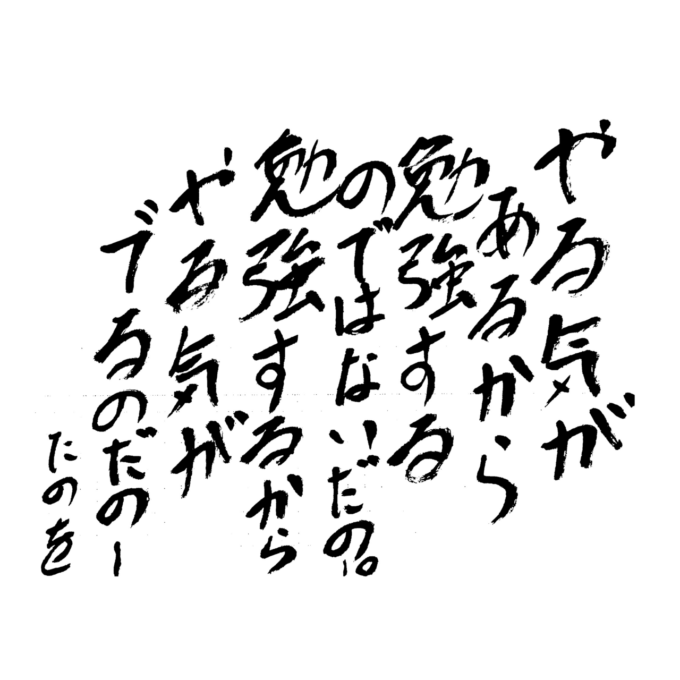 やる気が
あるから
勉強する
のではないだのー。
勉強するから
やる気が
でるのだのー
たのを